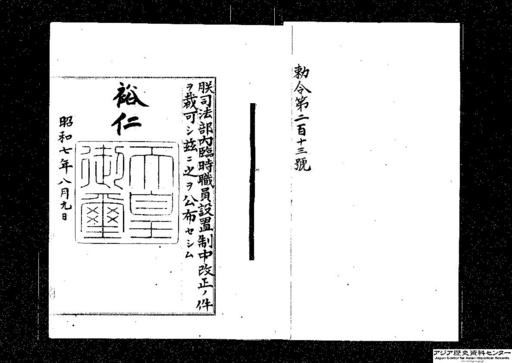 勅令第二百十三號
朕司法部內臨時職員設置制中改正ノ件
ヲ裁可シ茲ニ之ヲ公布セシム
裕仁
天皇
御璽
昭和七年八月九日
アジア歴史資料センター
Japan Center for Asian Historical Records